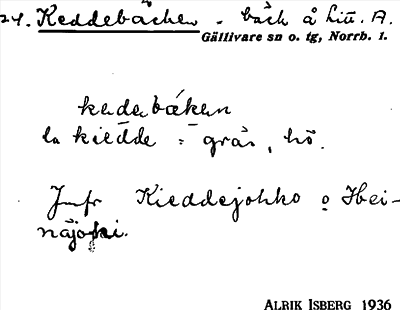 24. Keddebäcken - bäck å Litt. A.
Gällivare sn o. tg, Norrb. l.
kedebäken
la kiedde = gräs, hö.
Jmfr Kieddejohko o Hei-
näjoki.
ALRIK ISBERG 1936